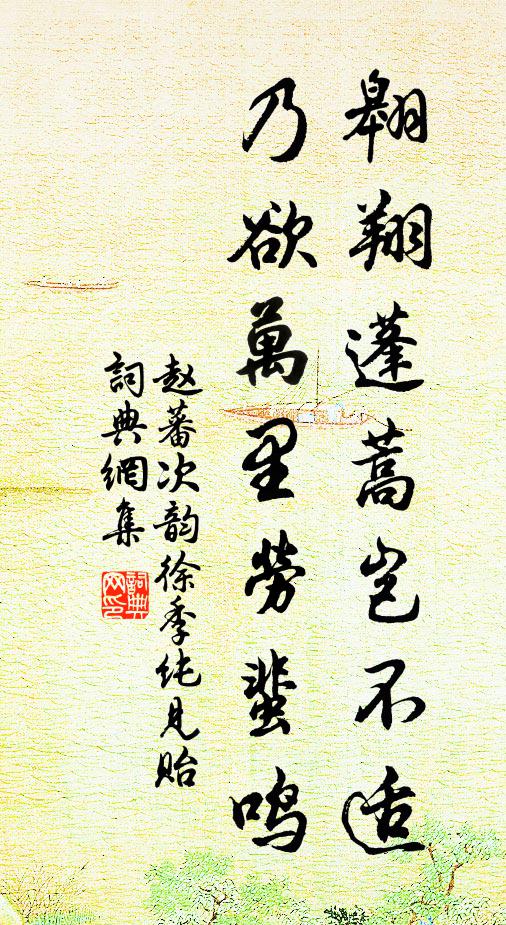 翱翔蓬蒿岂不适
乃欲萬里勞蜚鸣
赵蕃次韵徐季纯见贻
詞典網集
詞典网印